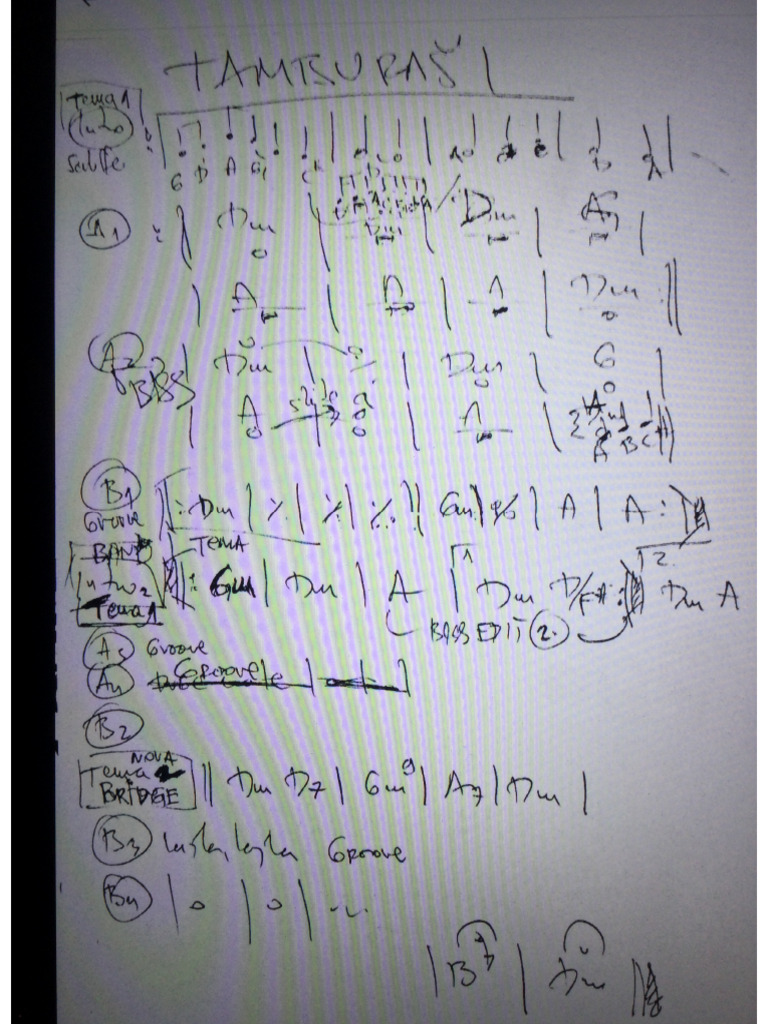 TAMTSURAŠ
Tema 1
Intro
G D A
A1 Dm Dm A7
A A A Dm
A2 BASS Dm % Dm G
A slide A
B C#
B1 Dm % % % Gm % A A
Groove
BAND TEMA
Intro 2 Gm Dm A 1 Dm D/F# 2. Dm A
Tema 1
BASS EDIT 2.
A3 Groove
A4 GROOVE
B2
NOVA
Tema 2 Dm D7 Gm9 A7 Dm
BRIDGE
B3 GROOVE
B4
Bb Dm